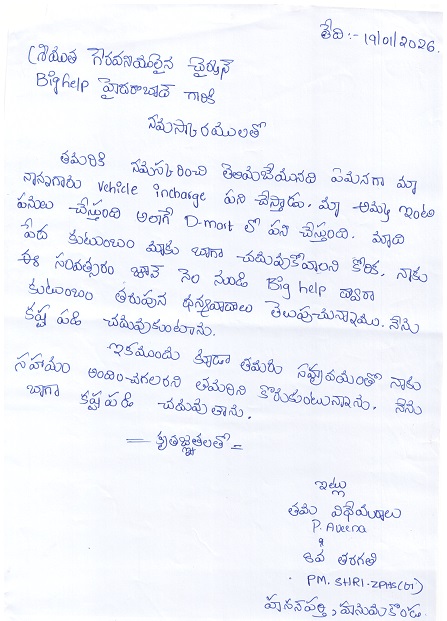 తేది:- 19/01/2026.
శ్రీయుత గౌరవనీయులైన చైర్మన్
Big help హైదరాబాద్ గారికి
నమస్కారములతో
తమరికి నమస్కరించి తెలియజేయునది ఏమనగా మా
నాన్నగారు vehicle incharge పని చేస్తాడు. మా అమ్మ ఇంటి
పనులు చేస్తుంది అలాగే D-mart లో పని చేస్తుంది. మాది
పేద కుటుంబం మాకు బాగా చదువుకోవాలని కోరిక. నాకు
ఈ సంవత్సరం జూన్ నెల నుండి Big help ద్వారా
కుటుంబం తరుపున ధన్యవాదాలు తెలుపుచున్నాము. నేను
కష్ట పడి చదువుకుంటాను.
ఇకముందు కూడా తమరు సహృదయంతో నాకు
సహాయం అందించగలరని తమరిని కోరుకుంటున్నాను. నేను
బాగా కష్టపడి చదువుతాను.
= కృతజ్ఞతలతో =
ఇట్లు
తమ విధేయురాలు
P. Aveena
8వ తరగతి
PM. SHRI. ZPHS(G)
హసనపర్తి, హనుమకొండ.